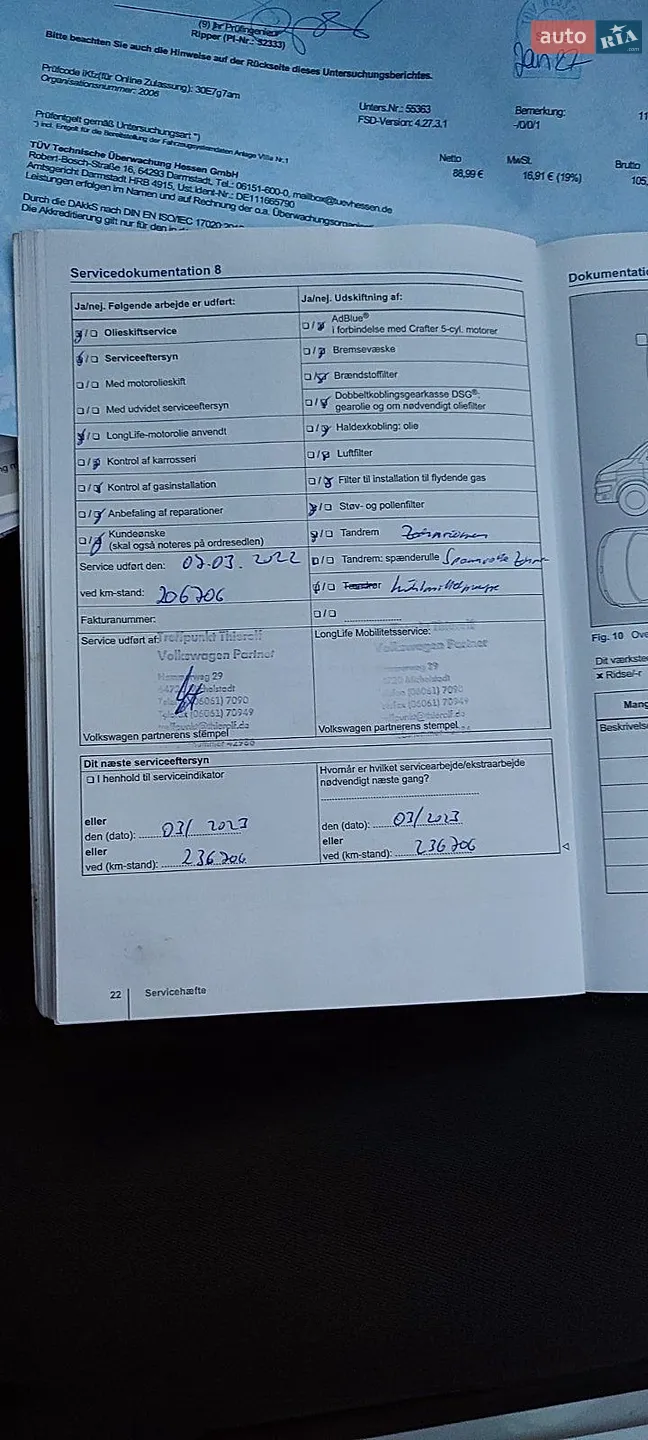 auto RIA .com
(9) Ihr Prüfingenieur
Ripper (PI-Nr.: 32333)
Bitte beachten Sie auch die Hinweise auf der Rückseite dieses Untersuchungsberichtes.
Prüfcode iKfz(für Online Zulassung): 30E7g7am
Organisationsnummer: 2006
Unters.Nr.: 55363
FSD-Version: 4.27.3.1
Bemerkung:
-/0/0/1
Prüfentgelt gemäß Untersuchungsart *)
Netto
MwSt.
Brutto
88,99 €
16,91 € (19%)
105,
TÜV Technische Überwachung Hessen GmbH
Robert-Bosch-Straße 16, 64293 Darmstadt, Tel.: 06151-600-0, mailbox@tuevhessen.de
Amtsgericht Darmstadt HRB 4915, Ust.Ident-Nr.: DE111665790
Leistungen erfolgen im Namen und auf Rechnung der o.a.
Durch die DAkkS nach DIN EN ISO/IEC 17020
Die Akkreditierung gilt nur für den in
Servicedokumentation 8
Ja/nej. Følgende arbejde er udført:
Ja/nej. Udskiftning af:
Olieskiftservice
AdBlue®
i forbindelse med Crafter 5-cyl. motorer
Serviceeftersyn
Bremsevæske
Med motorolieskift
Brændstoffilter
Med udvidet serviceeftersyn
Dobbeltkoblingsgearkasse DSG®:
gearolie og om nødvendigt oliefilter
LongLife-motorolie anvendt
Haldexkobling: olie
Kontrol af karrosseri
Luftfilter
Kontrol af gasinstallation
Filter til installation til flydende gas
Anbefaling af reparationer
Støv- og pollenfilter
Kundeønske
(skal også noteres på ordresedlen)
Tandrem Zahnriemen
Service udført den: 07.03.2022
Tandrem: spænderulle
ved km-stand: 206706
Fakturanummer:
Service udført af:
LongLife Mobilitetsservice:
Treffpunkt Thierolf
Volkswagen Partner
Volkswagen Partner
(06061) 7090
(06061) 70949
Volkswagen partnerens stempel
Volkswagen partnerens stempel
Dit næste serviceeftersyn
I henhold til serviceindikator
Hvornår er hvilket servicearbejde/ekstraarbejde
nødvendigt næste gang?
eller
den (dato): 03/2023
eller
ved (km-stand): 236706
den (dato): 03/2023
eller
ved (km-stand): 236706
22 Servicehæfte
Dokumentati
Fig. 10
Dit værkste
x Ridse/-r
Mang
Beskrivels